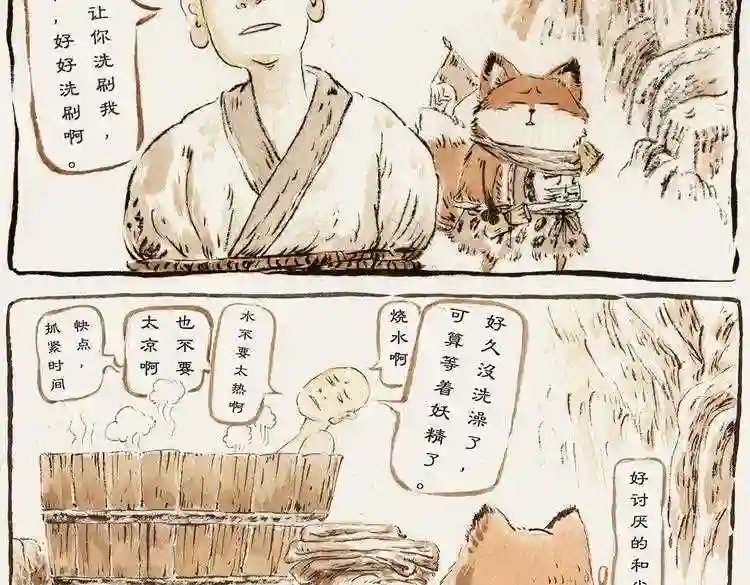 让你洗刷我，
，好好洗刷啊。
好久沒洗澡了，
可算等着妖精了。
烧水啊
水不要太热啊
也不要
太凉啊
快点，
抓紧时间
好讨厌的和尚